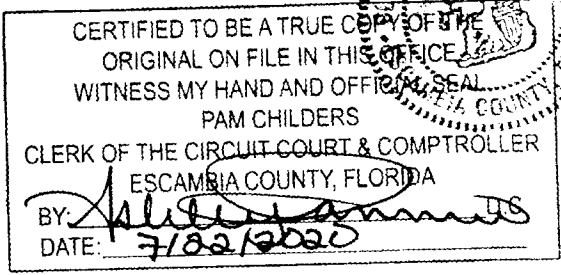 CERTIFIED TO BE A TRUE COPY OF THE
ORIGINAL ON FILE IN THIS OFFICE
WITNESS MY HAND AND OFFICIAL SEAL
PAM CHILDERS
CLERK OF THE CIRCUIT COURT & COMPTROLLER
ESCAMBIA COUNTY, FLORIDA
BY: D.C.
DATE: 7/22/2020
COUNTY